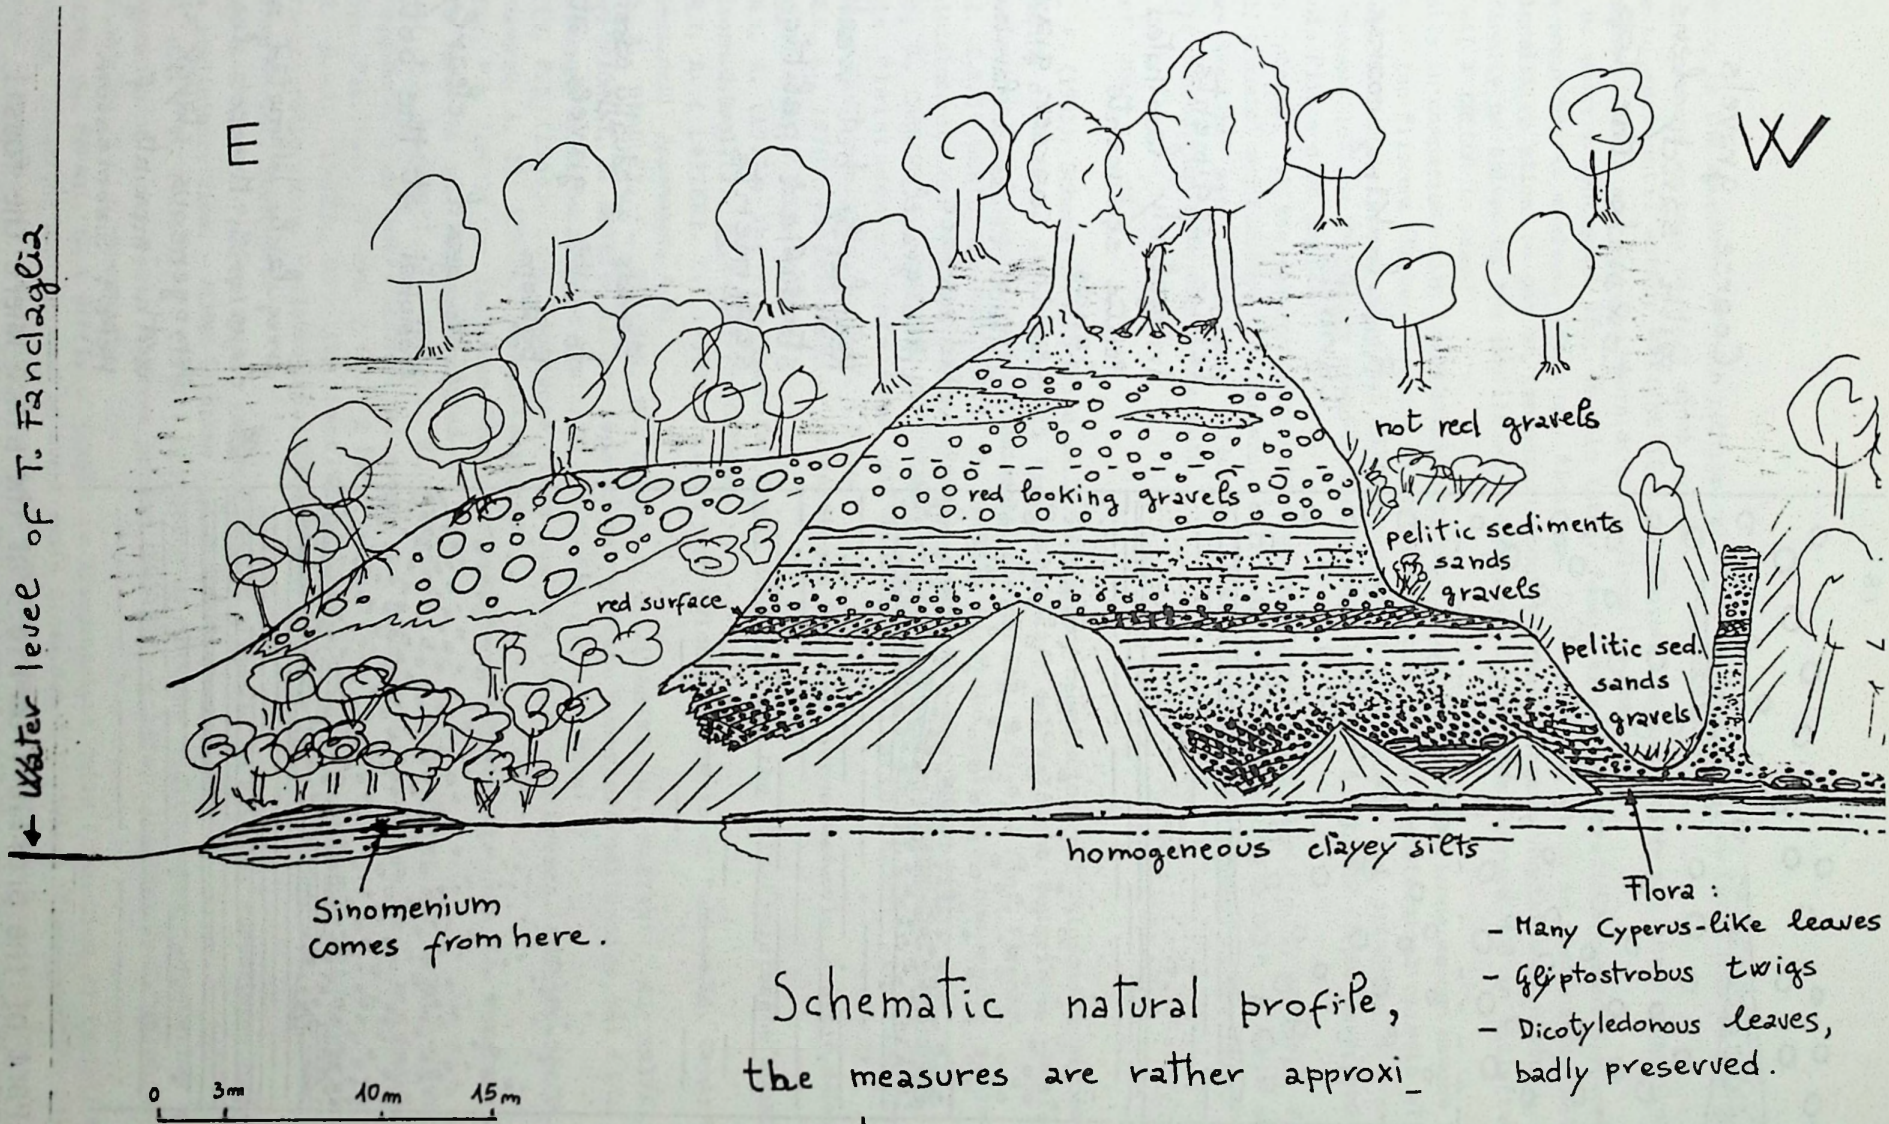 E
W
← Water level of T. Fandaglia
not red gravels
red looking gravels
pelitic sediments
sands
gravels
red surface
pelitic sed.
sands
gravels
homogeneous clayey silts
Sinomenium
comes from here.
Flora :
- Many Cyperus-like leaves
- Glyptostrobus twigs
- Dicotyledonous leaves,
badly preserved.
Schematic natural profile,
the measures are rather approxi_
0 3m 10m 15m